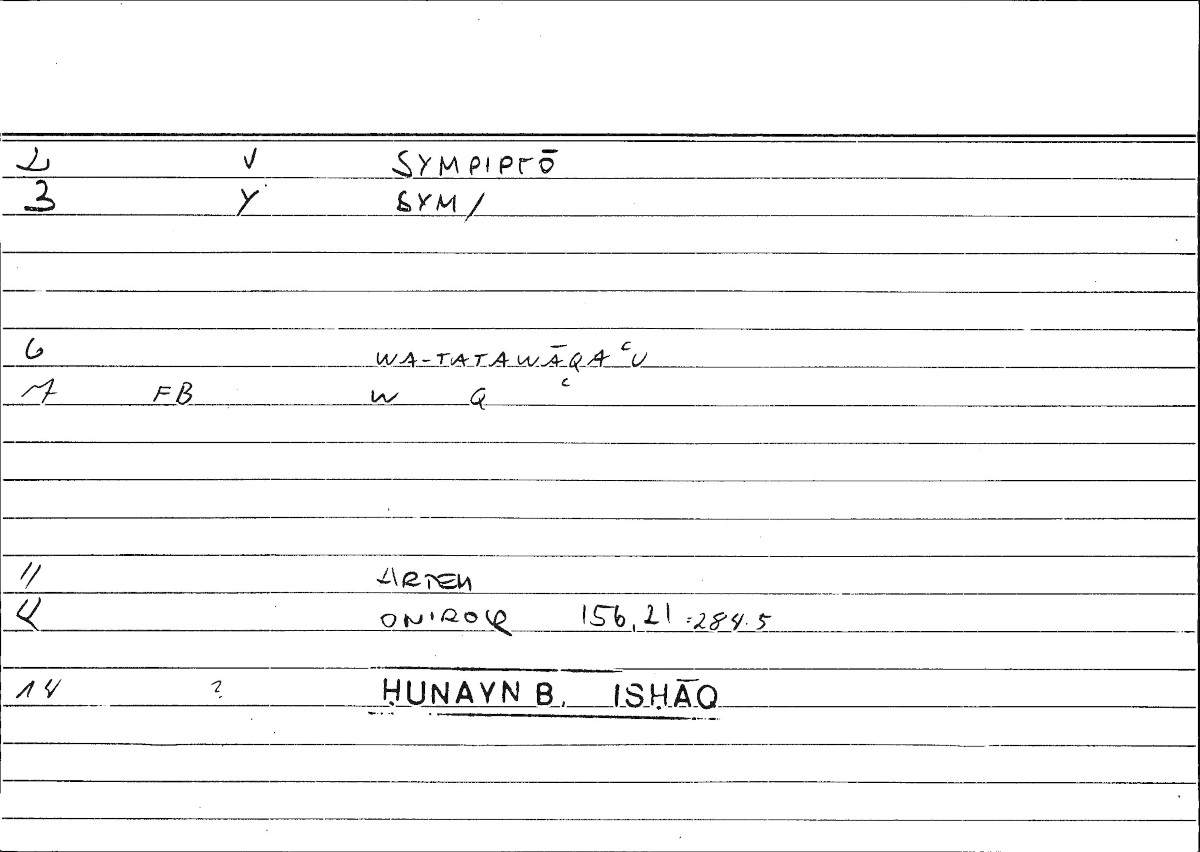 2 V SYMPIPTŌ
3 Y SYM/
6 WA-TATAWĀQAʿU
7 FB W Q ʿ
11 ARTEM
ONIROCR 156,21 =284.5
14 ? ḤUNAYN B. ISḤĀQ